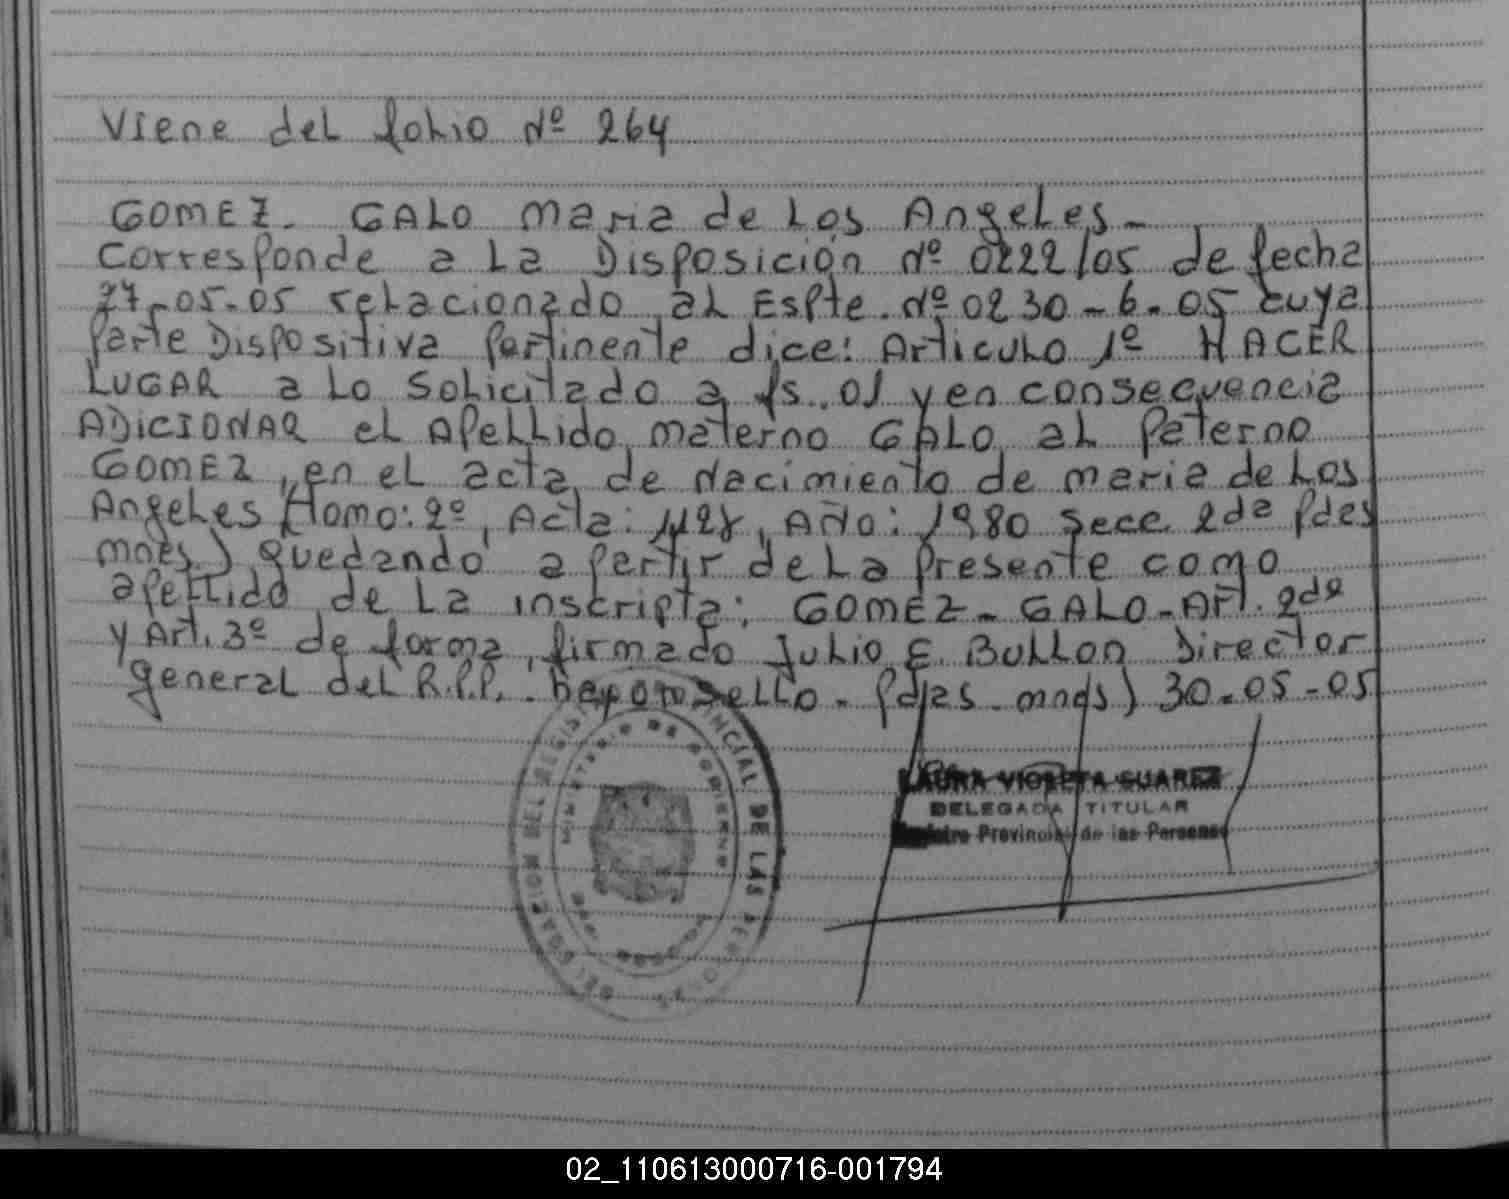 Viene del folio Nº 264
GOMEZ. GALO Maria de Los Angeles-
Corresponde a La Disposición Nº 0222/05 de fecha
27-05-05 relacionado al Espte. Nº 0230-6-05 cuya
parte Dispositiva pertinente dice: Articulo 1º HACER
LUGAR a Lo Solicitado a fs. 01 y en consecuencia
ADICIONAR el Apellido materno GALO al Paterno
GOMEZ, en el acta de Nacimiento de maria de Los
Angeles (tomo: 2º, Acta: 1128, Año: 1980 Secc 2da Pdas
mnes) quedando a partir de La presente como
apellido de La inscripta: GOMEZ-GALO-Art. 2do
y Art. 3º de forma, firmado Julio E. Bullon Director
general del R.P.P. hay un Sello- Pdas mnes) 30-05-05
LAURA VIOLETA SUAREZ
DELEGADA TITULAR
Registro Provincial de las Personas
02_110613000716-001794